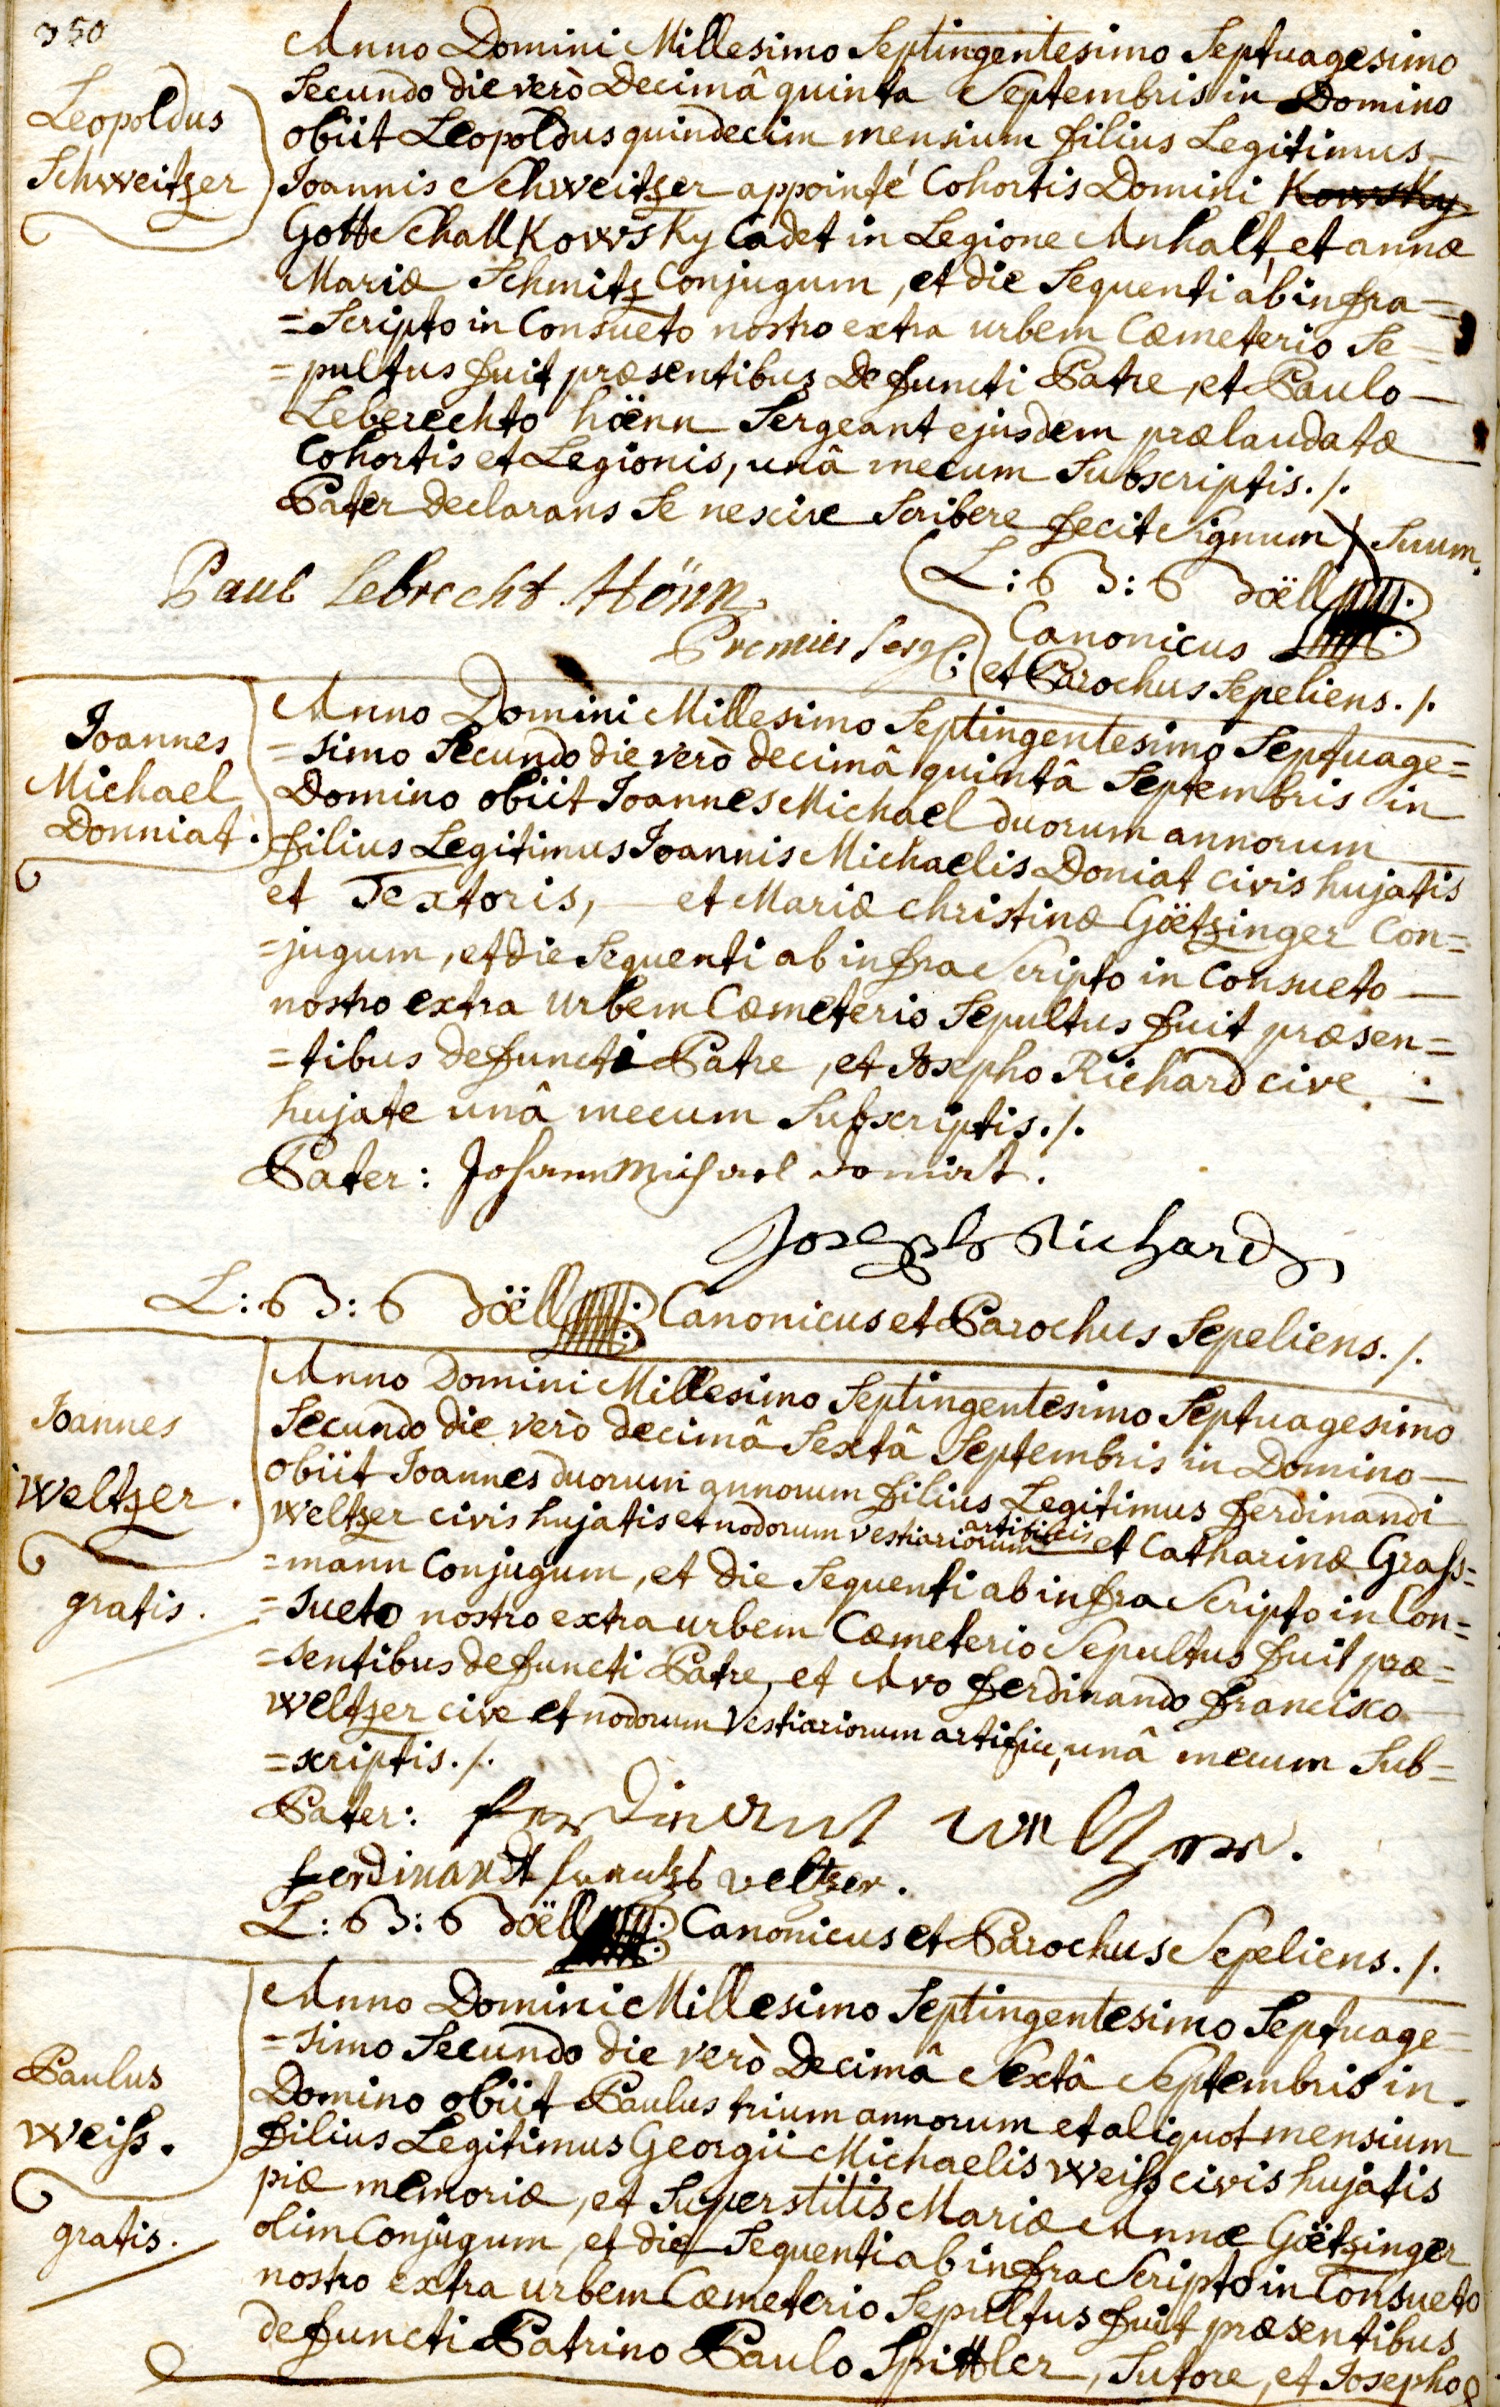 350
Leopoldus
Schweitzer
Anno Domini Millesimo Septingentesimo Septuagesimo
Secundo die verò Decimâ quinta Septembris in Domino
obiit Leopoldus quindecim mensium filius Legitimus
Joannis Schweitzer appointé Cohortis Domini Kowsky
GottSchallKowsKy Cadet in Legione Anhalt, et annæ
Mariæ Schmitz Conjugum, et die Sequenti ab infra=
=Scripto in Consueto nostro extra urbem Cæmeterio Se=
=pultus fuit præsentibus Defuncti Patre, et Paulo
Leberechto höenn Sergeant ejusdem prælaudatæ
Cohortis et Legionis, unâ mecum Subscriptis./.
Pater declarans Se nescire Scribere fecit Signum X Suum.
Paul Lebrecht Hönn
Premier Serg:
L: B: B Döell
Canonicus
et Parochus Sepeliens./.
Joannes
Michael
Donniat.
Anno Domini Millesimo Septingentesimo Septuage=
=simo Secundo die verò decimâ quintâ Septembris in
Domino obiit Joannes Michael duorum annorum
filius Legitimus Joannis Michaelis Doniat civis hujatis
et Textoris, et Mariæ Christinæ Göetzinger Con=
=jugum, et die Sequenti ab infra Scripto in Consueto
nostro extra urbem Cæmeterio Sepultus fuit præsen=
=tibus defuncti Patre, et Josepho Richard cive
hujate unâ mecum Subscriptis./.
Pater: Johann Michael Doniat.
Joseph Richard
L: B: B Döell Canonicus et Parochus Sepeliens./.
Joannes
Weltzer.
gratis.
Anno Domini Millesimo Septingentesimo Septuagesimo
Secundo die verò decimâ Sextâ Septembris in Domino
obiit Joannes duorum annorum filius Legitimus ferdinandi
Weltzer civis hujatis et nodorum vestiariorum artificis et Catharinæ Grass=
=mann Conjugum, et die Sequenti ab infra Scripto in Con=
=sueto nostro extra urbem Cæmeterio Sepultus fuit præ=
=sentibus defuncti Patre, et Avo ferdinando francisco
Weltzer cive et nodorum Vestiariorum artifice, unâ mecum Sub=
=scriptis./.
Pater: ferdinand weltzer.
ferdinandt frantz veltzer.
L: B: B Döell Canonicus et Parochus Sepeliens./.
Paulus
Weiss.
gratis.
Anno Domini Millesimo Septingentesimo Septuage=
=simo Secundo die verò Decimâ Sextâ Septembris in
Domino obiit Paulus trium annorum et aliquot mensium
filius Legitimus Georgii Michaelis Weiss civis hujatis
piæ memoriæ, et Superstitis Mariæ Annæ Göetzinger
olim Conjugum, et die Sequenti ab infra Scripto in Consueto
nostro extra urbem Cæmeterio Sepultus fuit præsentibus
defuncti Patrino Paulo Spittler, Sutore, et Josepho